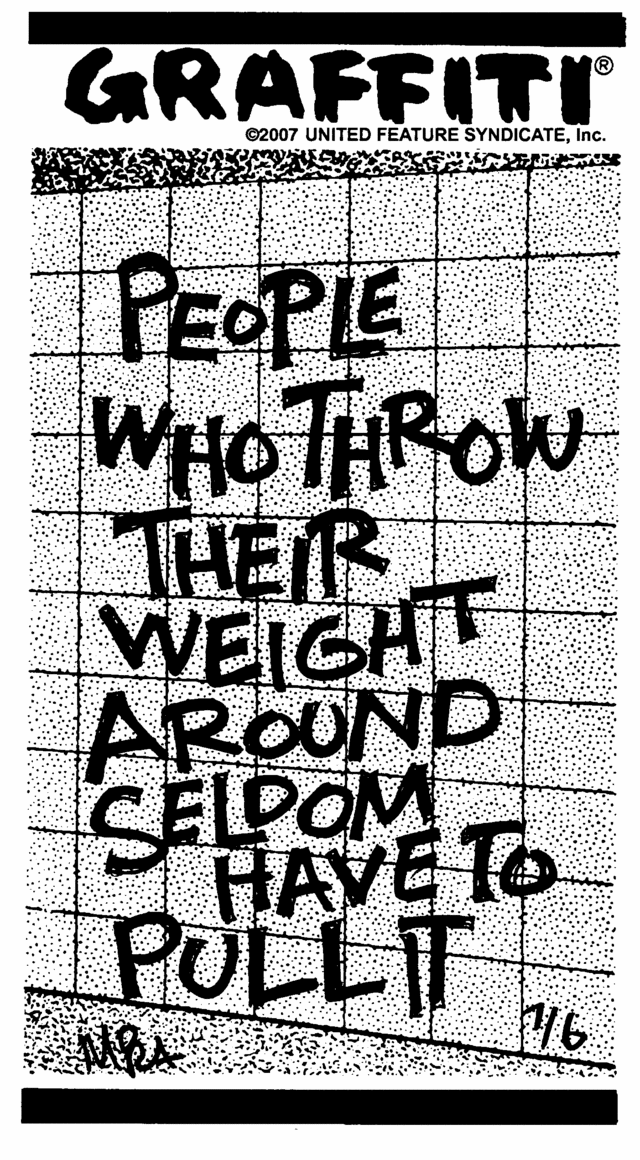 GRAFFITI®
©2007 UNITED FEATURE SYNDICATE, Inc.
PEOPLE
WHO THROW
THEIR
WEIGHT
AROUND
SELDOM
HAVE TO
PULL IT
1/6